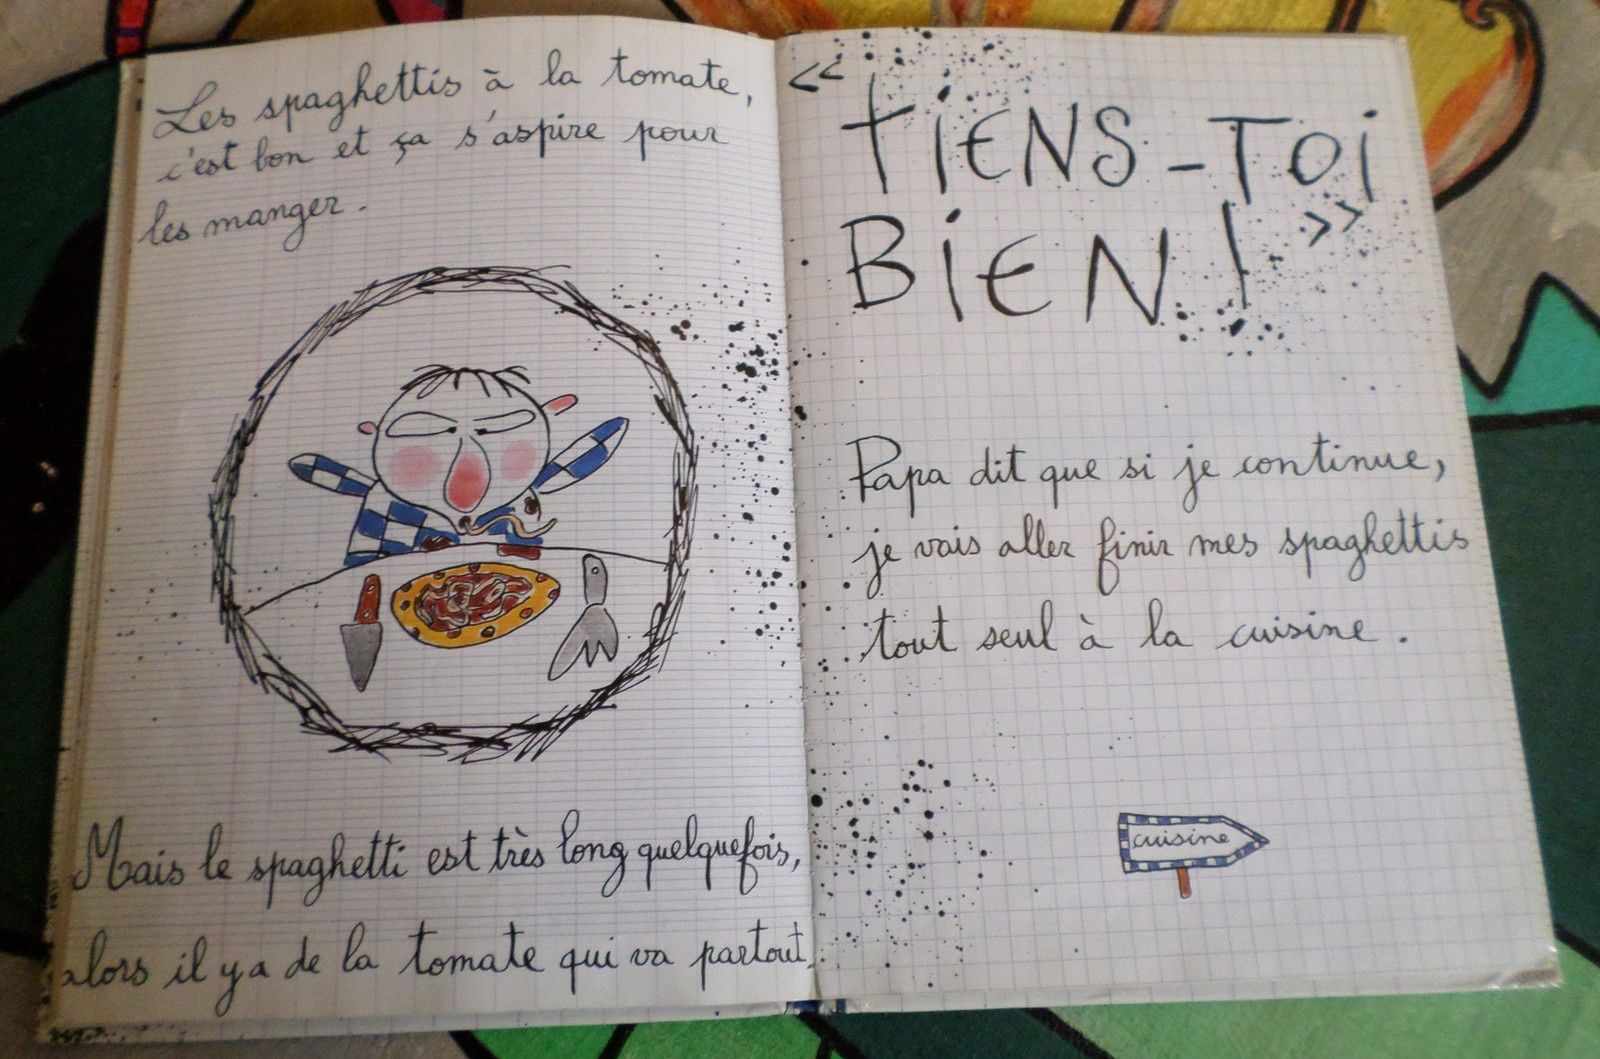 Les spaghettis à la tomate,
c'est bon et ça s'aspire pour
les manger.
Mais le spaghetti est très long quelquefois,
alors il y a de la tomate qui va partout.
<< TIENS-TOI
BIEN! >>
Papa dit que si je continue,
je vais aller finir mes spaghettis
tout seul à la cuisine.
cuisine